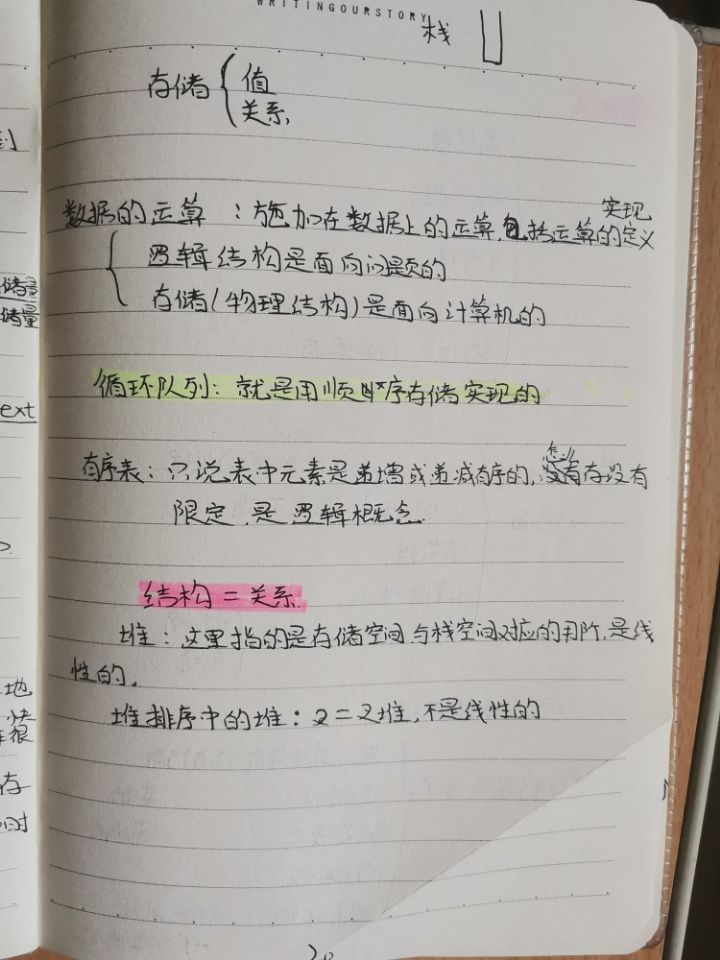 WRITINGOURSTORY
栈
存储
值
关系
数据的运算：施加在数据上的运算,包括运算的定义
实现
逻辑结构是面向问题的
存储(物理结构)是面向计算机的
循环队列：就是用顺序存储实现的
有序表：只说表中元素是递增或递减有序的,
怎么
存没有
限定,是逻辑概念.
结构=关系.
堆：这里指的是存储空间与栈空间对应的
是线
性的.
堆排序中的堆：
堆,不是线性的
ext
储量
储量
到
地
快
很
存
时